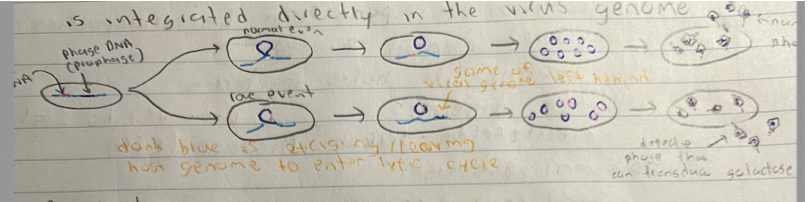 is integrated directly in the virus genome
normal even
phage DNA
(prophage)
NA
some of
viral genome left behind
rare event
dark blue is excising/leaving
host genome to enter lytic cycle
defective
phage that
can transduce galactose